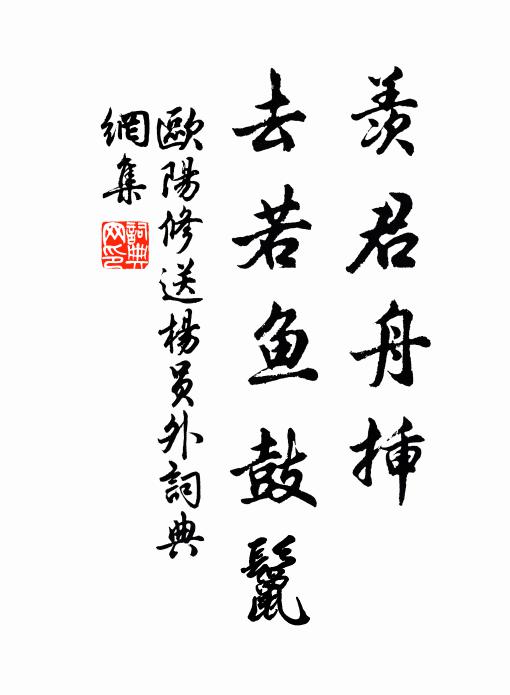 羨君舟插
去若鱼鼓鬣
歐陽修送楊員外詞典
網集
詞典网印